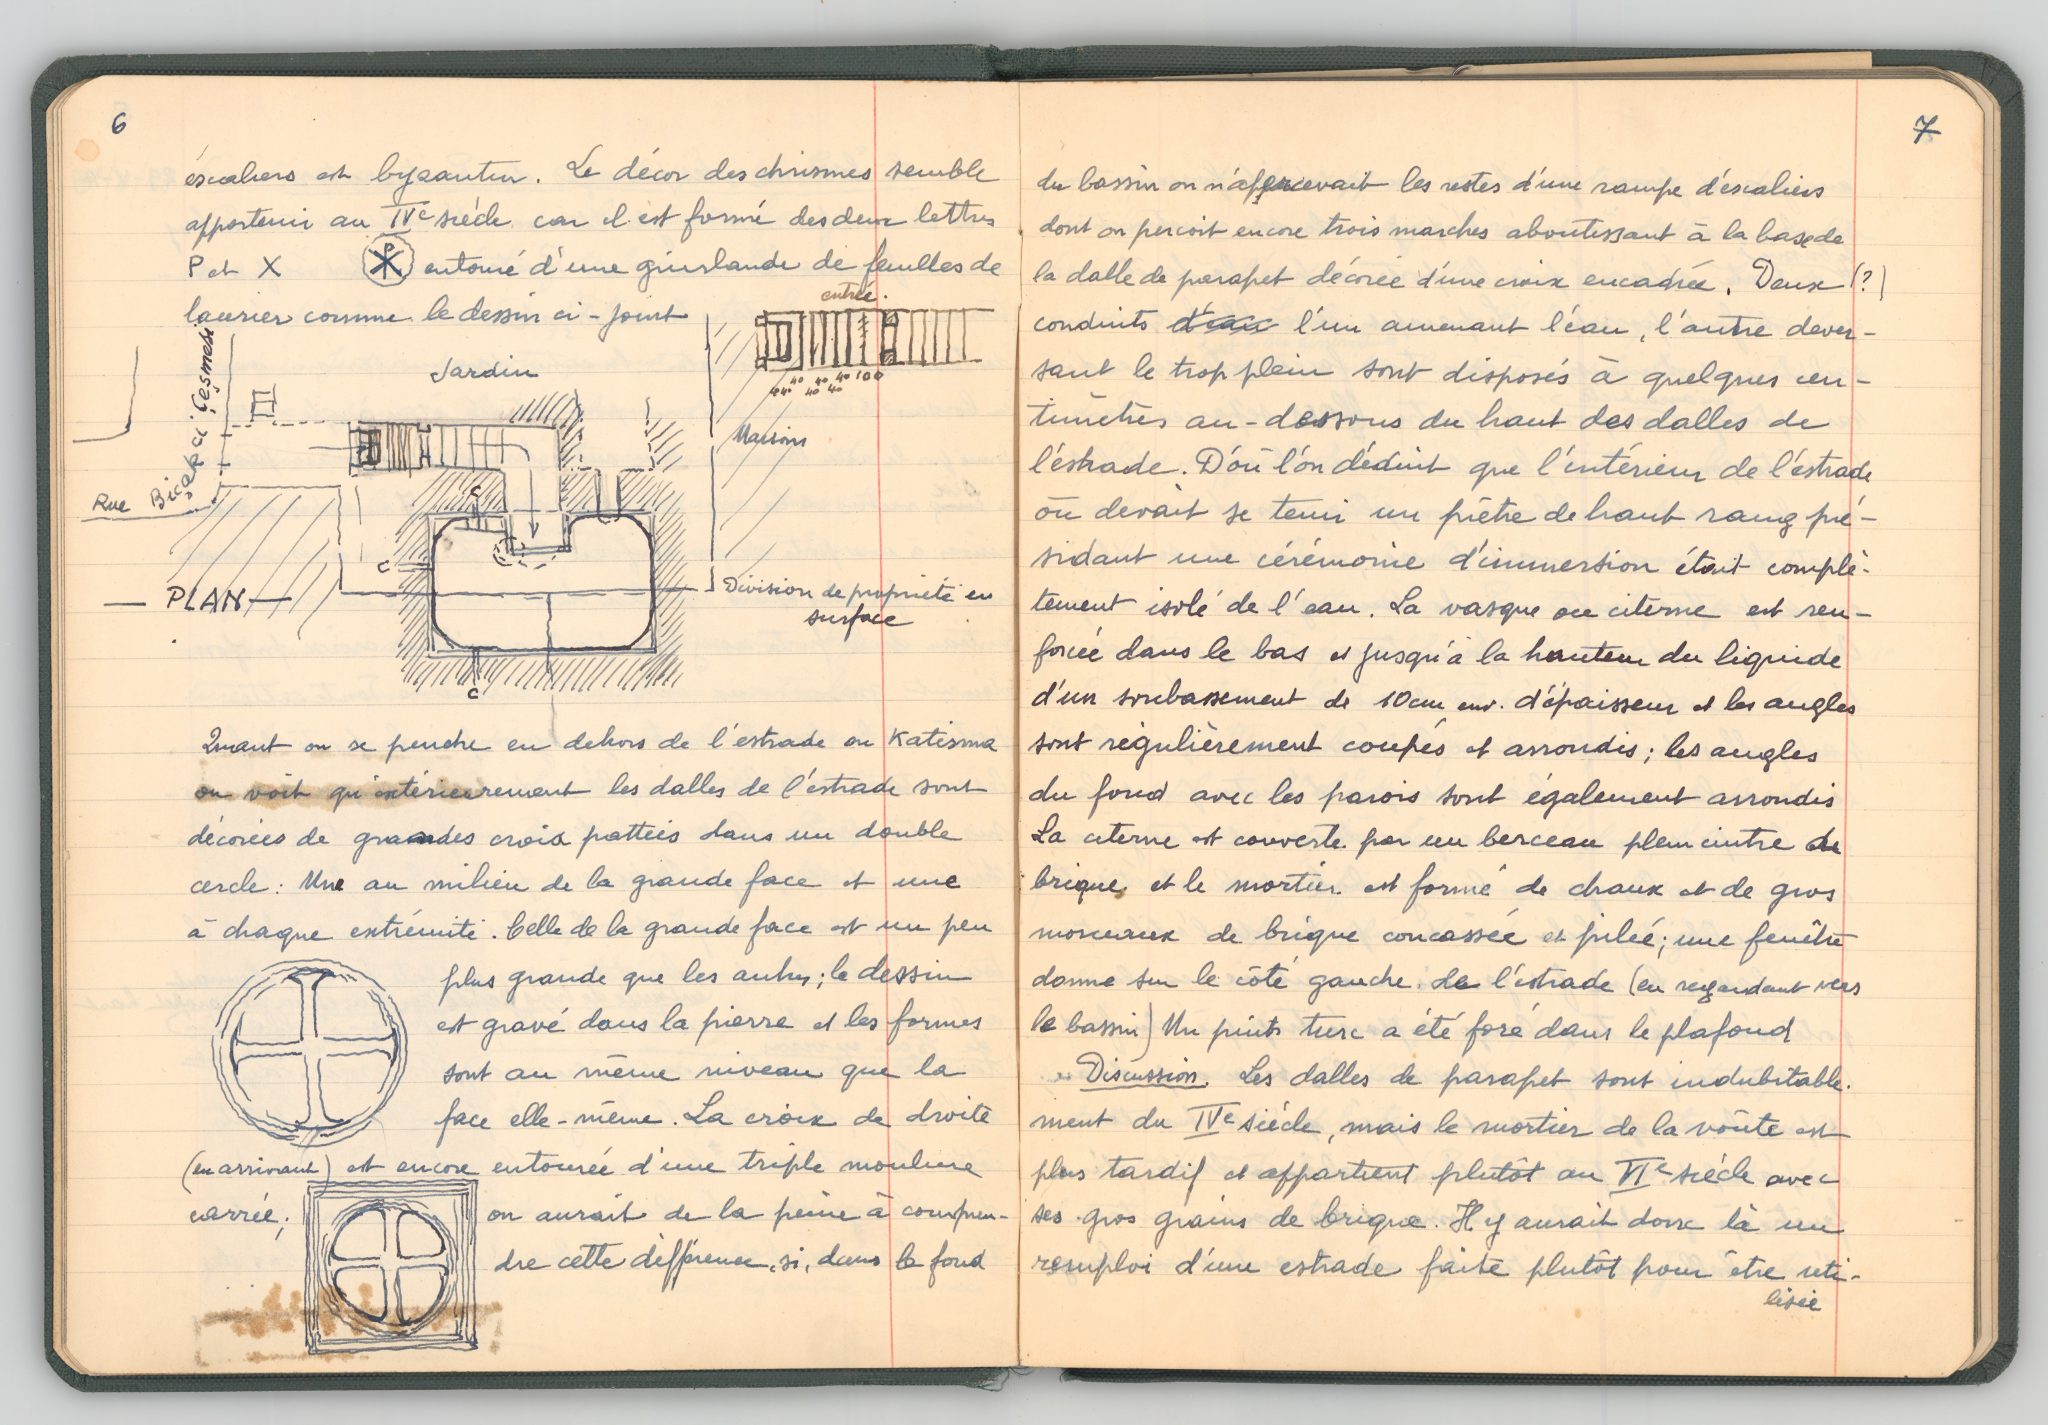 6
éscaliers est byzantin. Le décor des chrismes semble
appartenir au IVe siécle car il est formé des deux lettres
P et X entouré d'une guirlande de feuilles de
laurier comme le dessin ci-joint
entrée.
40 40 40 40 40 40 100
Jardin
Maisons
Rue Bıçakçı Çeşmesi
C
C
C
— PLAN —
Division de propriété en
surface
Quant on se penche en dehors de l'estrade ou Katisma
on voit qu'extérieurement les dalles de l'éstrade sont
décorées de grandes croix pattées dans un double
cercle : Une au milieu de la grande face et une
à chaque extrémité. Celle de la grande face est un peu
plus grande que les autres ; le dessin
est gravé dans la pierre et les formes
sont au même niveau que la
face elle-même. La croix de droite
(en arrivant) est encore entourée d'une triple moulure
carrée ; on aurait de la peine à compren-
dre cette différence, si, dans le fond
7
du bassin on n'appercevait les restes d'une rampe d'éscaliers
dont on percoit encore trois marches aboutissant à la base de
la dalle de parapet décorée d'une croix encadrée. Deux (?)
conduits d'eau l'un amenant l'éau, l'autre dever-
sant le trop plein sont disposés à quelques cen-
timètres au-dessous du haut des dalles de
l'éstrade. D'où l'on déduit que l'intérieur de l'éstrade
où devait se tenir un prêtre de haut rang pré-
sidant une cérémonie d'immersion était complè-
tement isolé de l'eau. La vasque ou citerne est ren-
forcée dans le bas et jusqu'à la hauteur du liquide
d'un soubassement de 10cm env. d'épaisseur et les angles
sont régulièrement coupés et arrondis ; les angles
du fond avec les parois sont également arrondis
La citerne est couverte par un berceau plein cintre de
brique et le mortier est formé de chaux et de gros
morceaux de brique concassée et pilée ; une fenêtre
donne sur le côté gauche de l'éstrade (en regardant vers
le bassin) Un puits turc a été foré dans le plafond
Discussion. Les dalles de parapet sont indubitable-
ment du IVe siécle, mais le mortier de la voûte est
plus tardif et appartient plutôt au VIe siécle avec
ses gros grains de brique. Il y aurait donc là un
remploi d'une estrade faite plutôt pour être uti-
lisée